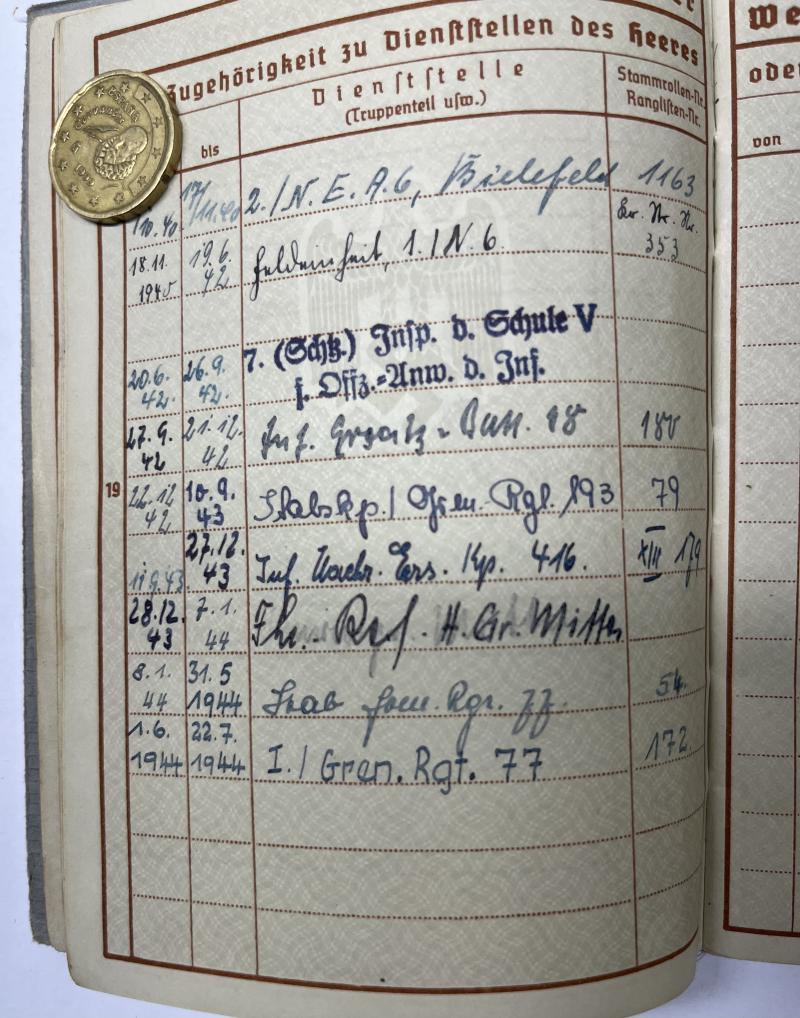 Zugehörigkeit zu Dienststellen des Heeres
bis
Dienststelle
(Truppenteil usw.)
Stammrollen-Nr.
Ranglisten-Nr.
10.40 17/11.40 2./N.E.A.6, Bielefeld 1163
18.11.1940 19.6.42 Feldeinheit, 1./N.6 Kr. St. Nr. 353
20.6.42. 26.9.42. 7. (Schtz.) Insp. d. Schule V
f. Offz.=Anw. d. Inf.
27.9.42 21.12.42 Inf. Ersatz-Batl. 18 180
19
22.12.42 10.9.43 Stabskp./Gren. Rgt. 193 79
11.9.43 27.12.43 Inf. Nachr. Ers. Kp. 416. XIII 179
28.12.43 7.1.44 H. Gr. Mitte
8.1.44 31.5.1944 Stab Gren. Rgt. 77. 54.
1.6.1944 22.7.1944 I./Gren. Rgt. 77 172
We
oder
von